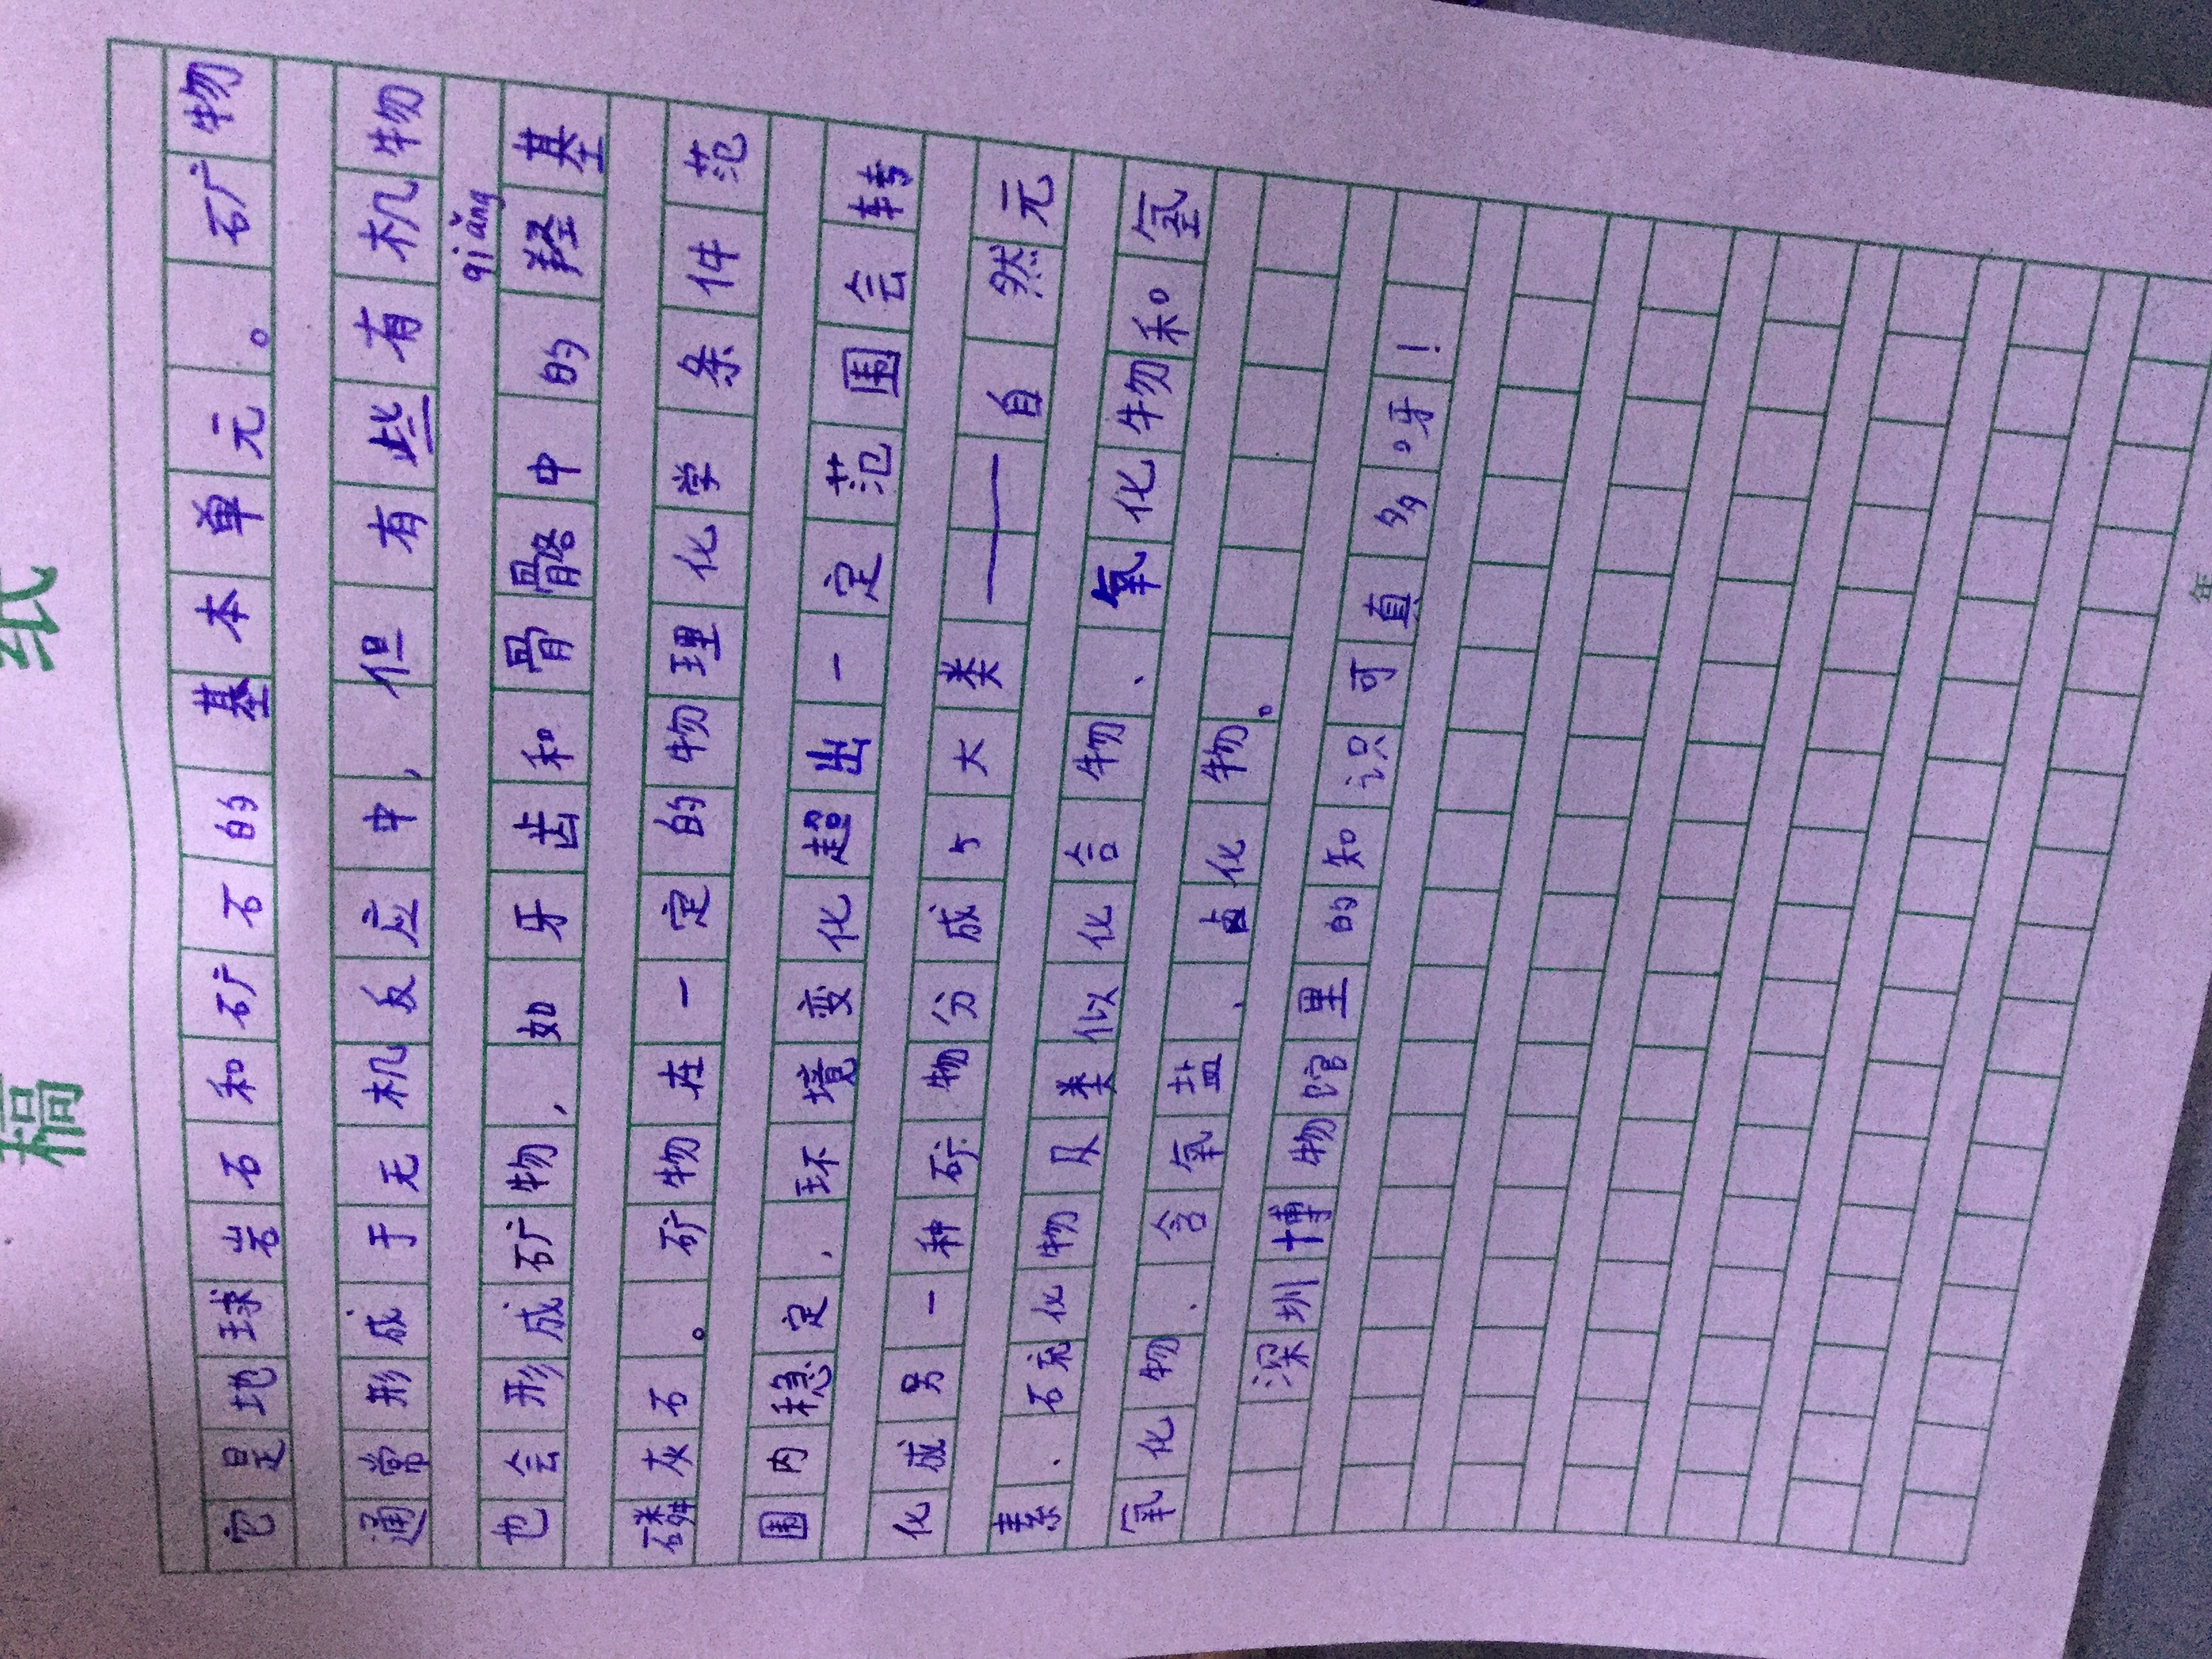 稿 纸
它是地球岩石和矿石的基本单元。矿物
通常形成于无机反应中,但有些有机物
qiǎng
也会形成矿物,如牙齿和骨骼中的羟基
磷灰石。矿物在一定的物理化学条件范
围内稳定,环境变化超出一定范围会转
化成另一种矿物分成5大类——自然元
素、硫化物及类似化合物、氧化物和氢
氧化物、含氧盐、卤化物。
深圳博物馆里的知识可真多呀!
年